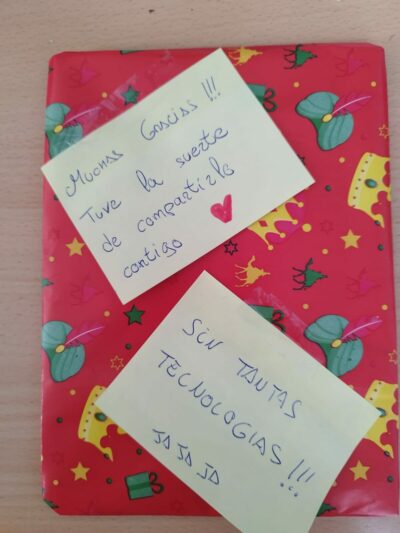 Muchas Gracias !!!
Tuve la suerte
de compartirlo
contigo
SIN TANTAS
TECNOLOGIAS !!!
JA JA JA